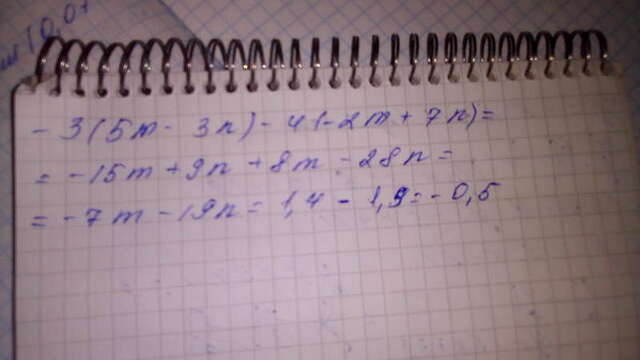 10,01
- 3(5m - 3n) - 4(-2m + 7n) =
= -15m + 9n + 8m - 28n =
= -7m - 19n = 1,4 - 1,9 = -0,5